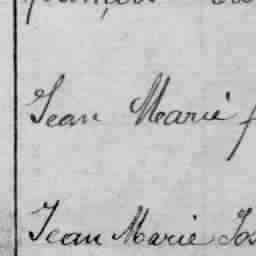 Jean Marie
Jean Marie Jos